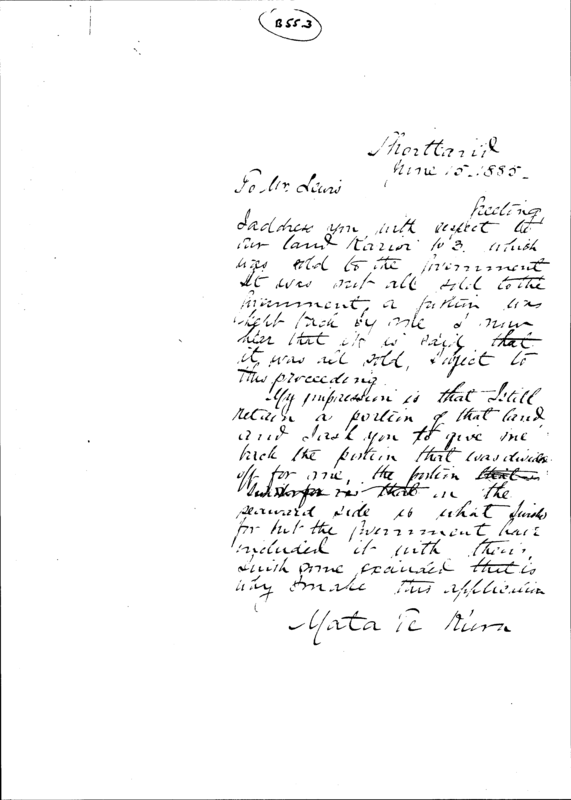 B55.3
Shortland
June 15. 1885.
To Mr. Lewis
Greeting,
I address you with respect to
our land No 3. which
was sold to the Government
It was not all sold to the
Government, a portion was
kept back by me & I now
hear that it is said that
it was all sold, I object to
this proceeding.
My impression is that I still
retain a portion of that land
and I ask you to give me
back the portion that was divided
off for me, the portion that is
in the
seaward side is what I wish
for but the Government have
included it with theirs,
I wish mine excluded that is
why I make this application
Mata Te